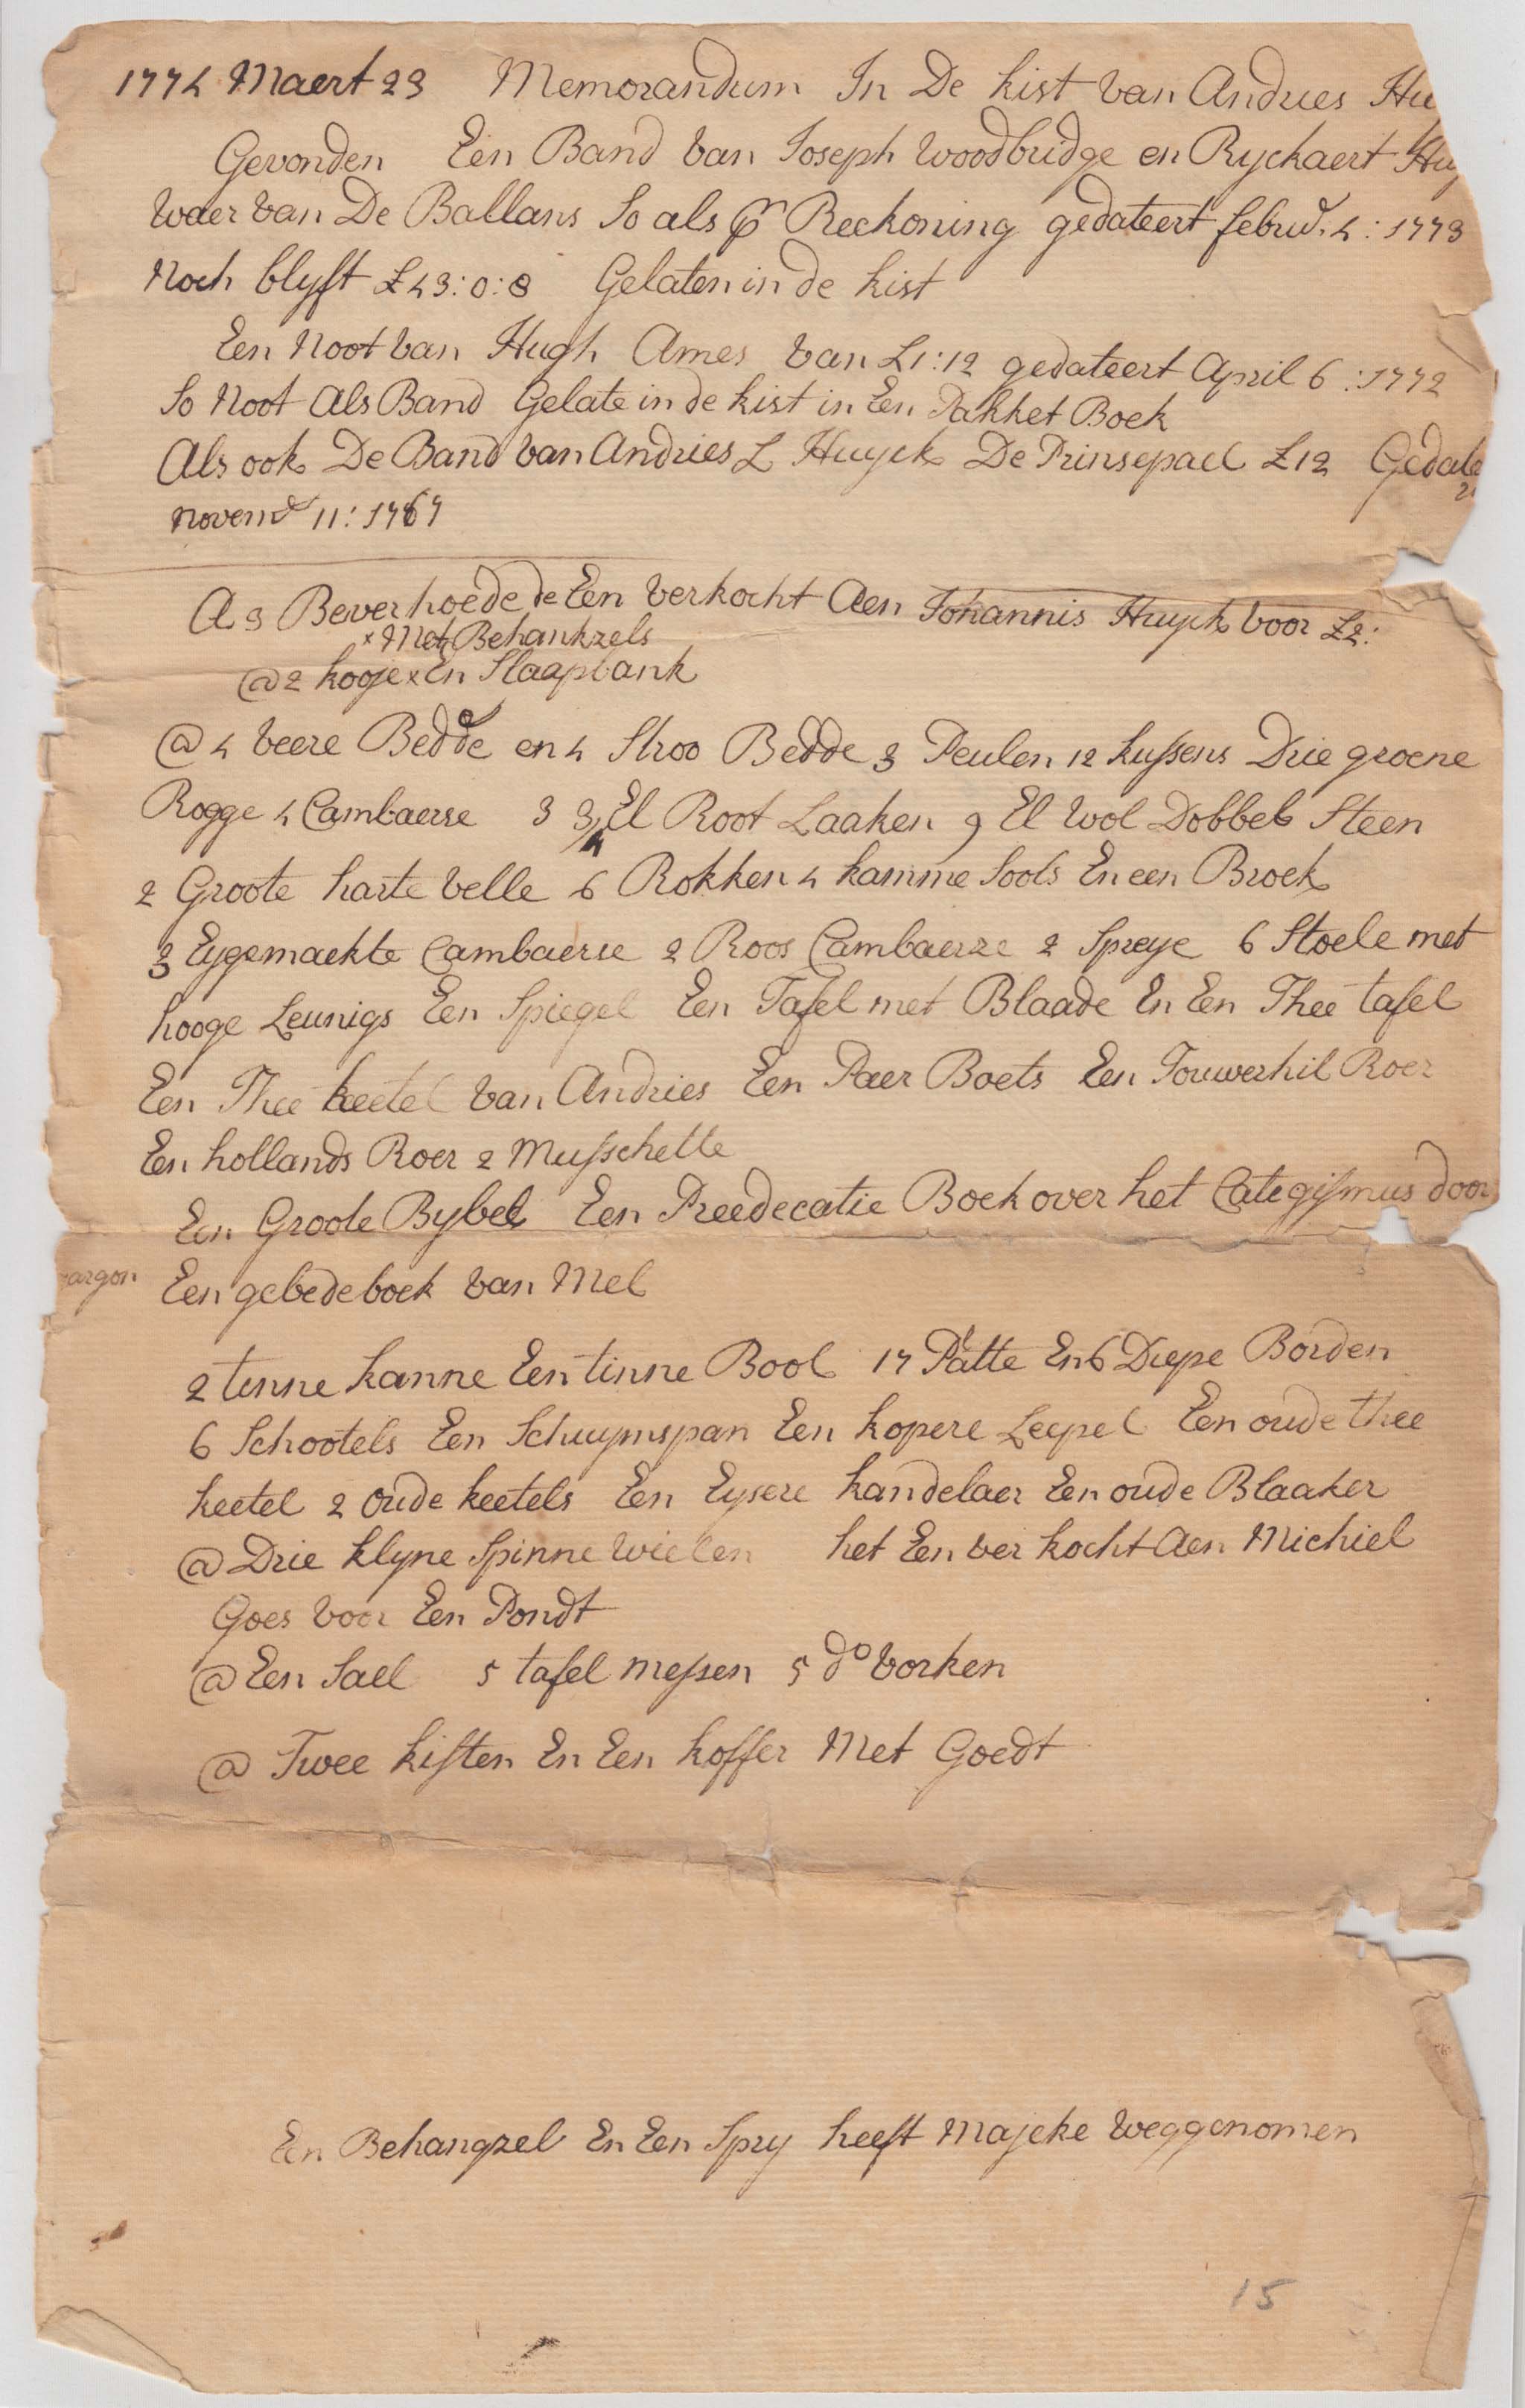 1774 Maert 23 Memorandum In De kist van Andries Hu
Gevonden Een Band van Joseph Woodbridge en Ryckaert Huy
Waer van De Ballans So als pr Reckoning gedateert februd. 4: 1773
Noch blyft £43:0:8 Gelaten in de kist
Een Noot van Hugh Ames van £1:12 gedateert April 6:1772
So Noot Als Band Gelate in de kist in Een Pakket Boek
Als ook De Band van Andries L Huyck De Prinsepael £12 Gedate
novemd 11: 1767
A 3 Beverhoede de Een verkocht Aen Johannis Huyck voor £2:
x Met Behankzels
@ 2 kooje x En Slaapbank
@ 4 veere Bedde en 4 Stroo Bedde 3 Peulen 12 kussens Drie groene
Rogge 4 Cambaerse 3 3/4 El Root Laaken 9 El Wol Dobbel Steen
2 Groote harte velle 6 Rokken 4 kamme Sools En een Broek
3 Eygemaekte Cambaerse 2 Roos Cambaerze 2 Spreye 6 Stoele met
hooge Leunigs Een Spiegel Een Tafel met Blaade En Een Thee tafel
Een Thee keetel van Andries Een Paer Boets Een Touwerhil Roer
En hollands Roer 2 Musschette
Een Groote Bybel Een Preedecatie Boek over het Categismus door
argon Een gebedeboek van Mel
2 tenne kanne Een tinne Bool 17 Platte En 6 Diepe Borden
6 Schootels Een Schuymspan Een kopere Leepel Een oude thee
keetel 2 oude keetels En Eysere kandelaer Een oude Blaaker
@ Drie klyne Spinne Wielen het Een verkocht Aen Michiel
Goes voor Een Pondt
@ Een Sael 5 tafel messen 5 do vorken
@ Twee kisten En Een koffer Met Goedt
En Behangzel En Een Spry heeft Majeke weggenomen
15